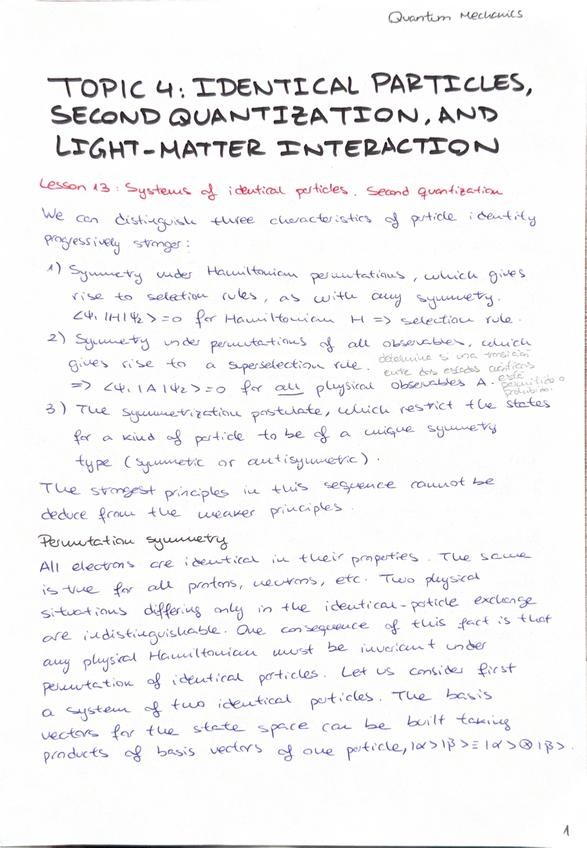 Quantum Mechanics
TOPIC 4: IDENTICAL PARTICLES,
SECOND QUANTIZATION, AND
LIGHT-MATTER INTERACTION
Lesson 13: Systems of identical particles. Second quantization
We can distinguish three characteristics of particle identity
progressively stronger:
1) Symmetry under Hamiltonian permutations, which gives
rise to selection rules, as with any symmetry.
<ψ₁|H|ψ₂>=0 for Hamiltonian H => selection rule.
2) Symmetry under permutations of all observables, which
gives rise to a superselection rule. determina si una transición
entre dos estados cuánticos
=> <ψ₁|A|ψ₂>=0 for all physical observables A. está
permitida o
prohibida.
3) The symmetrization postulate, which restrict the states
for a kind of particle to be of a unique symmetry
type (symmetric or antisymmetric).
The strongest principles in this sequence cannot be
deduce from the weaker principles.
Permutation symmetry
All electrons are identical in their properties. The same
is true for all protons, neutrons, etc. Two physical
situations differing only in the identical-particle exchange
are indistinguishable. One consequence of this fact is that
any physical Hamiltonian must be invariant under
permutation of identical particles. Let us consider first
a system of two identical particles. The basis
vectors for the state space can be built taking
products of basis vectors of one particle, |α>|β>≡|α>⊗|β>.
1